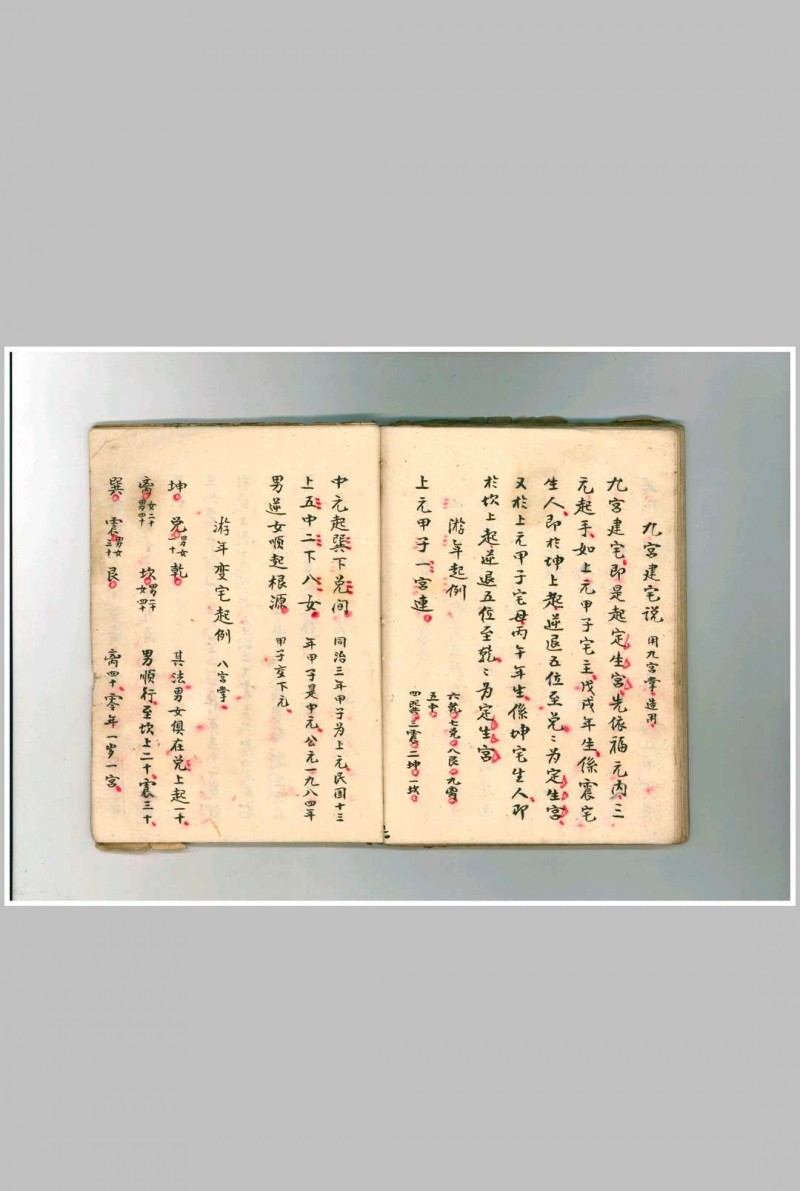 九宮建宅说 用九宮掌造用
九宮建宅,即是起定生宮,先依福元内三
元起手,如上元甲子宅主,戊戌年生,係震宅
生人,即於坤上起逆退五位至兑;兑为定生宮
又於上元甲子宅母,丙午年生,係坤宅生人,即
於坎上起逆退五位至乾;乾为定生宮
游年起例
六乾七兑八艮九離
五中
四巽三震二坤一坎
上元甲子一宮連
中元起巽下兑间 同治三年甲子为上元,民国十三
上五中二下八女 年甲子是中元,公元一九八四年
男逆女順起根源 甲子交下元
游年变宅起例 八宮掌
坤 兑男女一十 乾 其法男女俱在兑上起一十
離女二十男四十 坎男二十女四十 男顺行至坎上二十震三十
巽 震男女三十 艮 離四十,零年一岁一宮